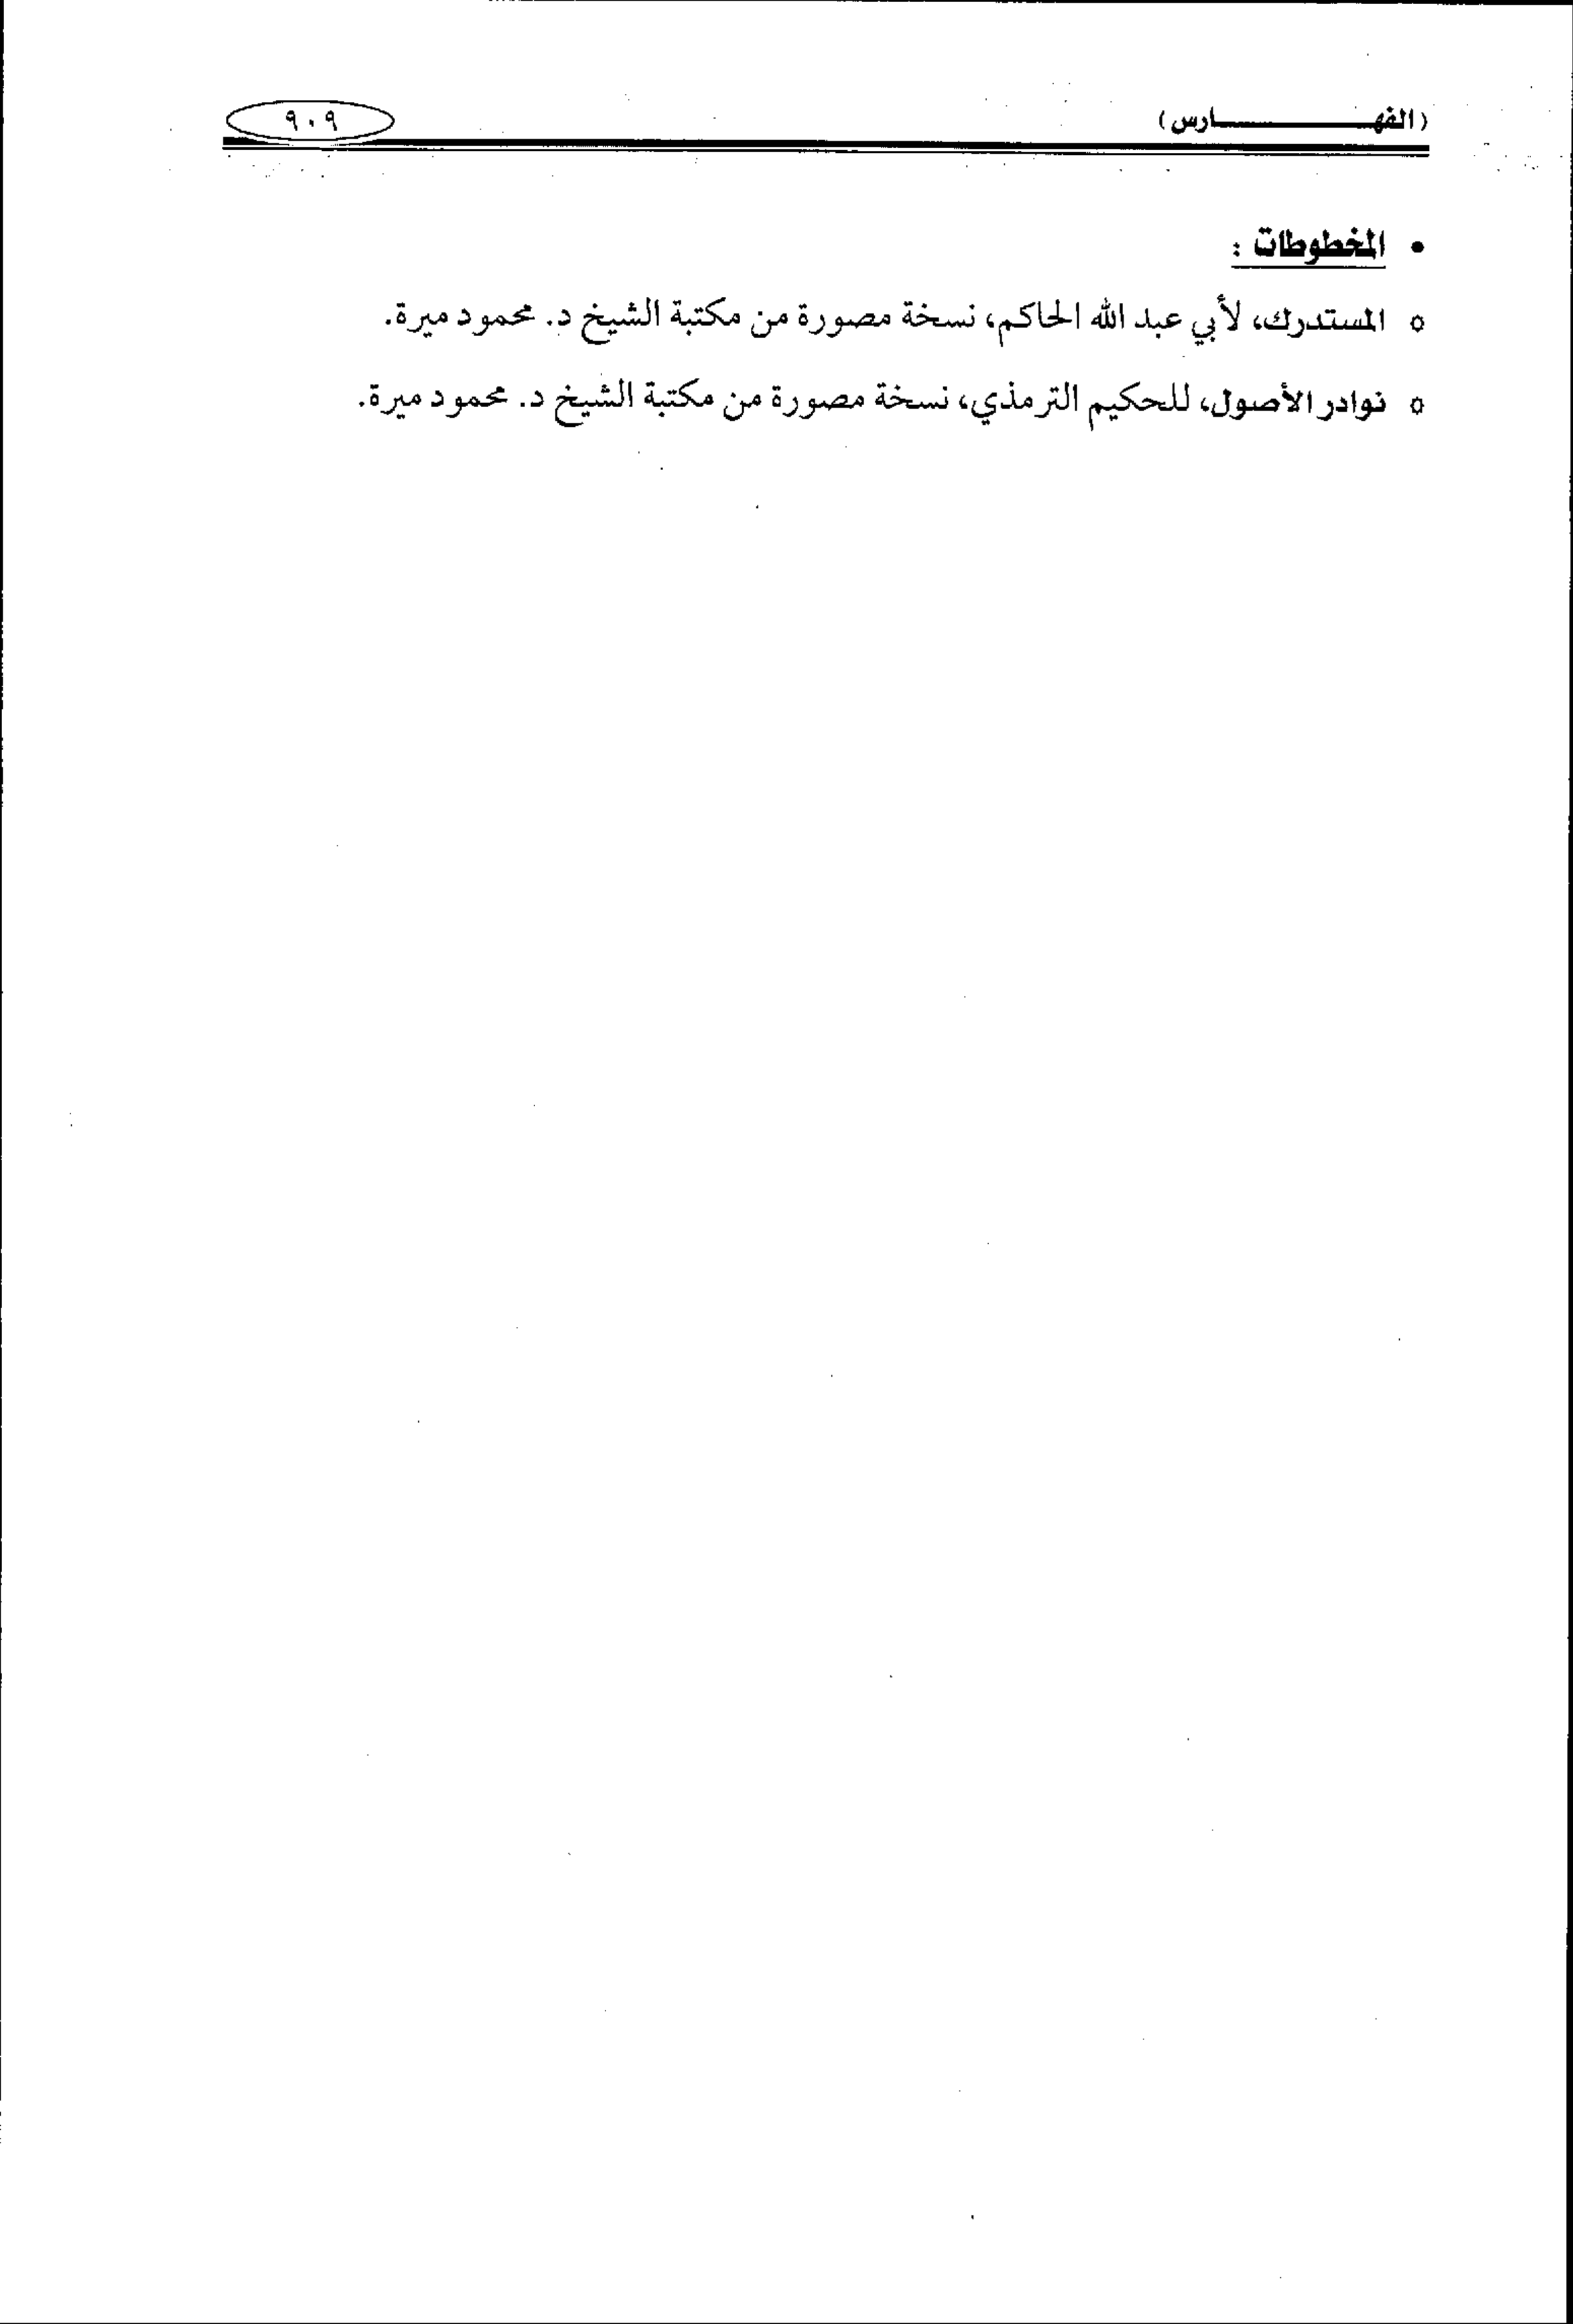 (الفهــــــــــارس)
٩٠٩
• المخطوطات :
○ المستدرك، لأبي عبد الله الحاكم، نسخة مصورة من مكتبة الشيخ د. محمود ميرة.
○ نوادر الأصول، للحكيم الترمذي، نسخة مصورة من مكتبة الشيخ د. محمود ميرة.